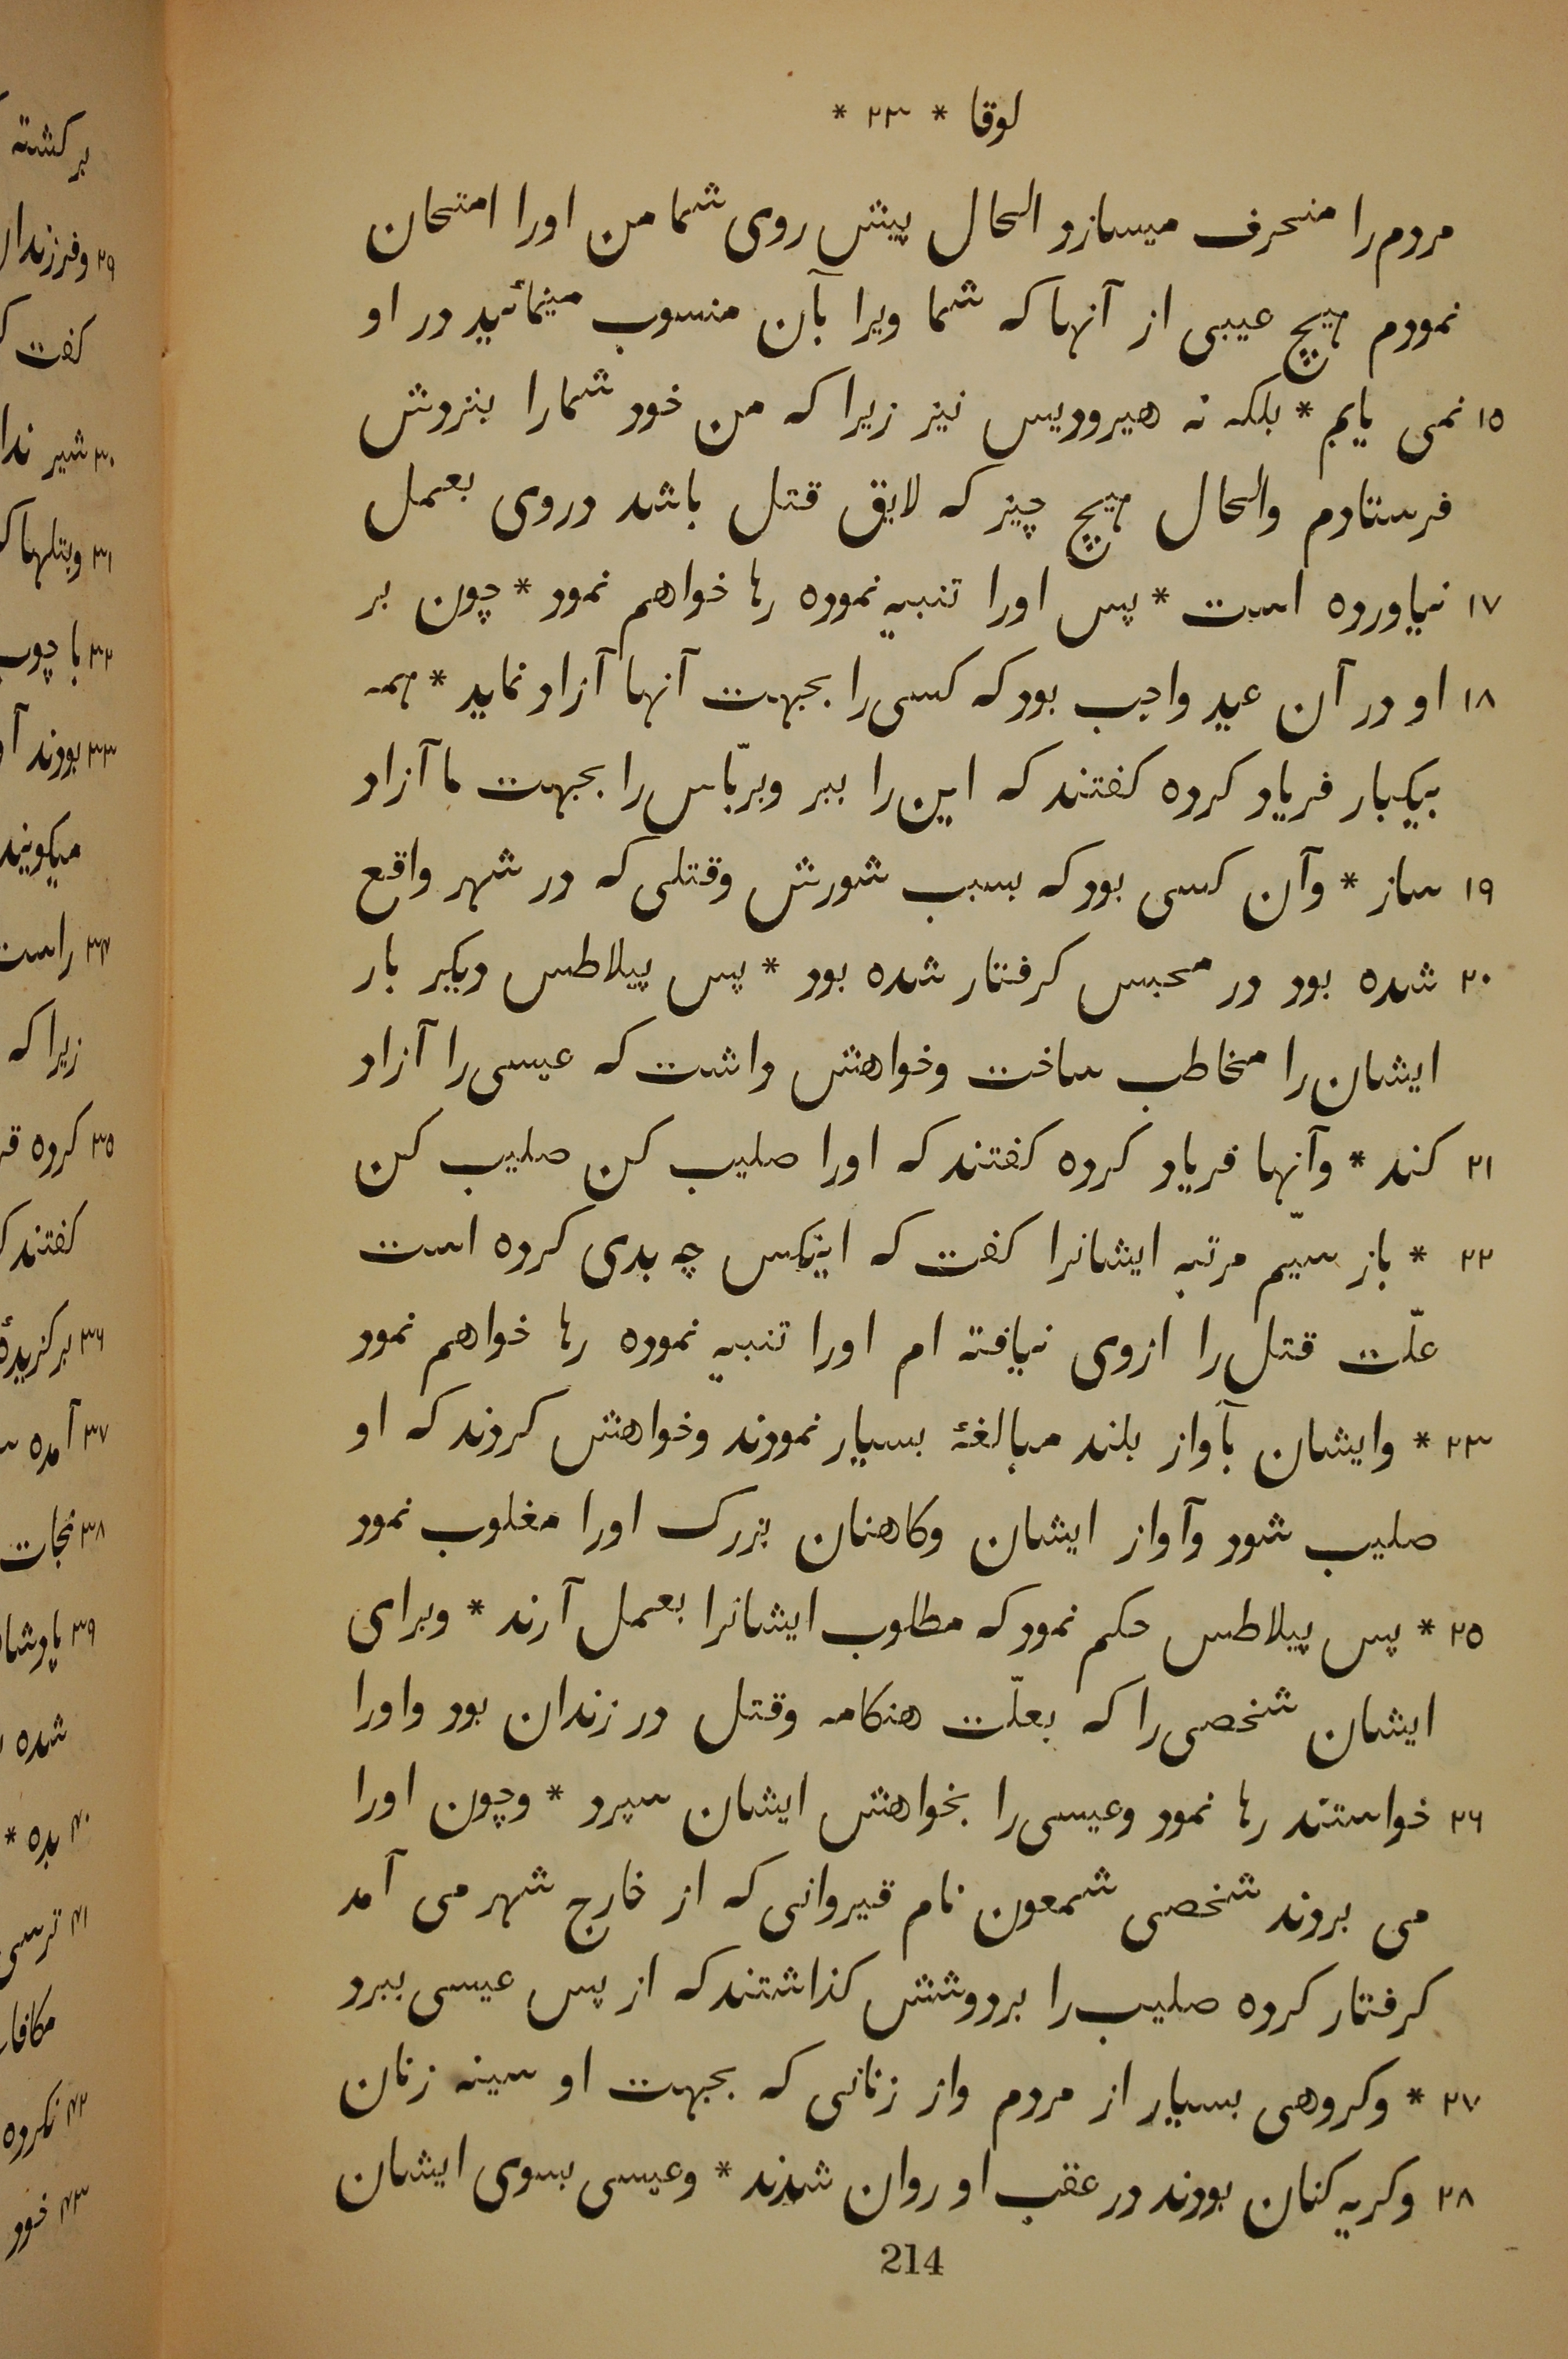 لوقا * ۲۳ *
مردم را منحرف میسازد الحال پیش روی شما من اورا امتحان
نمودم هیچ عیبی از آنها که شما ویرا بآن منسوب مینمائید در او
۱۵ نمی یابم * بلکه نه هیرودیس نیز زیرا که من خود شمارا بنزدش
فرستادم والحال هیچ چیز که لایق قتل باشد دروی بعمل
۱۷ نیاورده است * پس اورا تنبیه نموده رها خواهم نمود * چون بر
۱۸ او در آن عید واجب بود که کسی را بجهت آنها آزاد نماید * همه
بیکبار فریاد کرده کفتند که این را ببر وبربّاس را بجهت ما آزاد
۱۹ ساز * وآن کسی بود که بسبب شورش وقتلی که در شهر واقع
۲۰ شده بود در محبس کرفتار شده بود * پس پیلاطس دیکر بار
ایشان را مخاطب ساخت وخواهش داشت که عیسی را آزاد
۲۱ کند * وآنها فریاد کرده کفتند که اورا صلیب کن صلیب کن
۲۲ * باز سیّم مرتبه ایشانرا کفت که اینکس چه بدی کرده است
علّت قتل را ازوی نیافته ام اورا تنبیه نموده رها خواهم نمود
۲۳ * وایشان بآواز بلند مبالغهٔ بسیار نمودند وخواهش کردند که او
صلیب شود وآواز ایشان وکاهنان بزرک اورا مغلوب نمود
۲۵ * پس پیلاطس حکم نمود که مطلوب ایشانرا بعمل آرند * وبرای
ایشان شخصی را که بعلّت هنکامه وقتل در زندان بود واورا
۲۶ خواستند رها نمود وعیسی را بخواهش ایشان سپرد * وچون اورا
می بردند شخصی شمعون نام قیروانی که از خارج شهر می آمد
کرفتار کرده صلیب را بردوشش کذاشتند که از پس عیسی ببرد
۲۷ * وکروهی بسیار از مردم واز زنانی که بجهت او سینه زنان
۲۸ وکریه کنان بودند در عقب او روان شدند * وعیسی بسوی ایشان
214
برکشته
۲۹ وفرزندان
کفت
۳۰ شیر
۳۱ وبتلها
۳۲ با چوب
۳۳ بودند
میکویند
۳۴ راست
زیرا که
۳۵ کرده
کفتند
۳۶ برکزیدهٔ
۳۷ آمده
۳۸ نجات
۳۹
شده
۴۰ بده *
۴۱
۴۲ نکرده
۴۳ خود